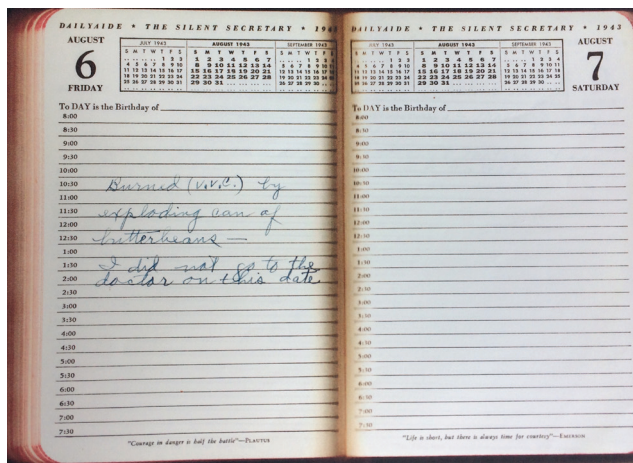 DAILYAIDE * THE SILENT SECRETARY * 1943
AUGUST
6
FRIDAY
JULY 1943
S M T W T F S
. . . . . . . . 1 2 3
4 5 6 7 8 9 10
11 12 13 14 15 16 17
18 19 20 21 22 23 24
25 26 27 28 29 30 31
AUGUST 1943
S M T W T F S
1 2 3 4 5 6 7
8 9 10 11 12 13 14
15 16 17 18 19 20 21
22 23 24 25 26 27 28
29 30 31
SEPTEMBER 1943
S M T W T F S
To DAY is the Birthday of
8:00
8:30
9:00
9:30
10:00
10:30 Burned (V.V.C.) by
11:00
11:30 exploding can of
12:00
12:30 butterbeans —
1:00
1:30 I did not go to the
2:00 doctor on this date
2:30
3:00
3:30
4:00
4:30
5:00
5:30
6:00
6:30
7:00
7:30
"Courage in danger is half the battle"—PLAUTUS
DAILYAIDE * THE SILENT SECRETARY * 1943
JULY 1943
S M T W T F S
. . . . . . . . 1 2 3
4 5 6 7 8 9 10
11 12 13 14 15 16 17
18 19 20 21 22 23 24
25 26 27 28 29 30 31
AUGUST 1943
S M T W T F S
1 2 3 4 5 6 7
8 9 10 11 12 13 14
15 16 17 18 19 20 21
22 23 24 25 26 27 28
29 30 31
SEPTEMBER 1943
S M T W T F S
. . . . . . 1 2 3 4
5 6 7 8 9 10 11
12 13 14 15 16 17 18
19 20 21 22 23 24 25
26 27 28 29 30
AUGUST
7
SATURDAY
To DAY is the Birthday of
8:00
8:30
9:00
9:30
10:00
10:30
11:00
11:30
12:00
12:30
1:00
1:30
2:00
2:30
3:00
3:30
4:00
4:30
5:00
5:30
6:00
6:30
7:00
7:30
"Life is short, but there is always time for courtesy"—EMERSON